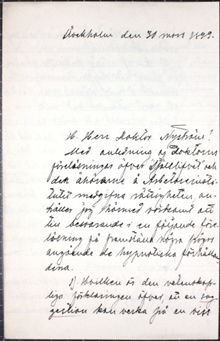 Stockholm den 30 mars 1893.
H. Herr Doktor Nyström!
Med anledning af Doktorns
föreläsningar öfver Själslifvet och
den åhörarne å Arbetareinsti-
tutet medgifna rättigheten an-
håller jag härmed vördsamt att
bli besvarade i en följande före-
läsning på framställda några frågor
angående de hypnotiska förhållan-
dena.
1) Hvilken är den vetenskap-
liga förklaringen öfver att en sug-
gestion kan verka på en viss